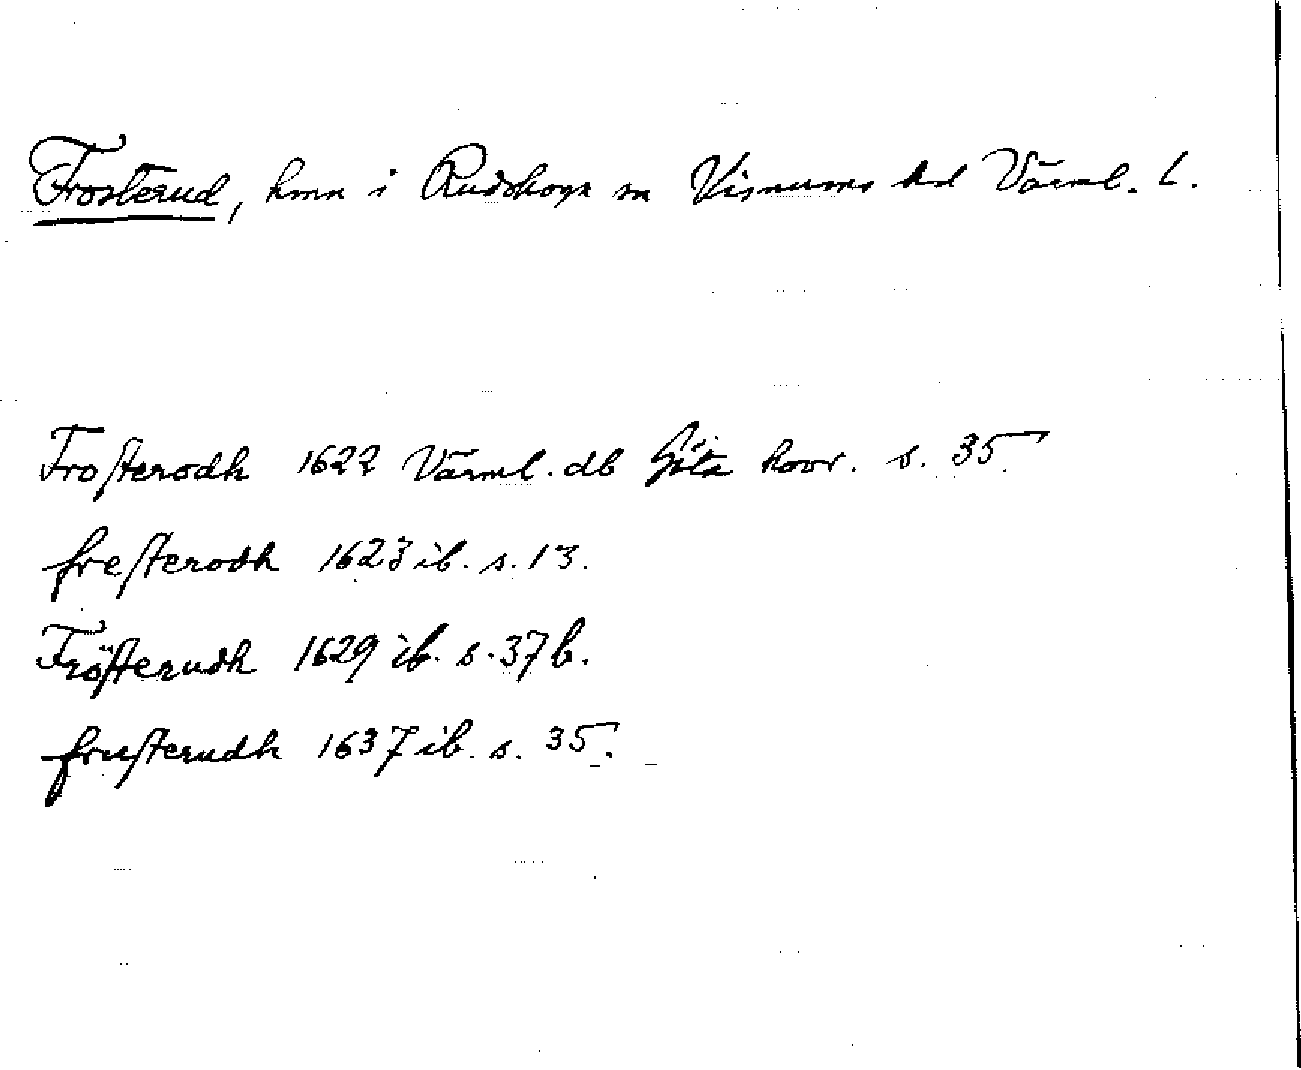 Frosterud, hmn i Rudskoga sn Visnums hd Värml. l.
Frosterodh 1622 Värml. db Göta hovr. s. 35.
fresterodh 1623 ib. s. 13.
Frösterudh 1629 ib. s. 37 b.
frusterudh 1637 ib. s. 35.